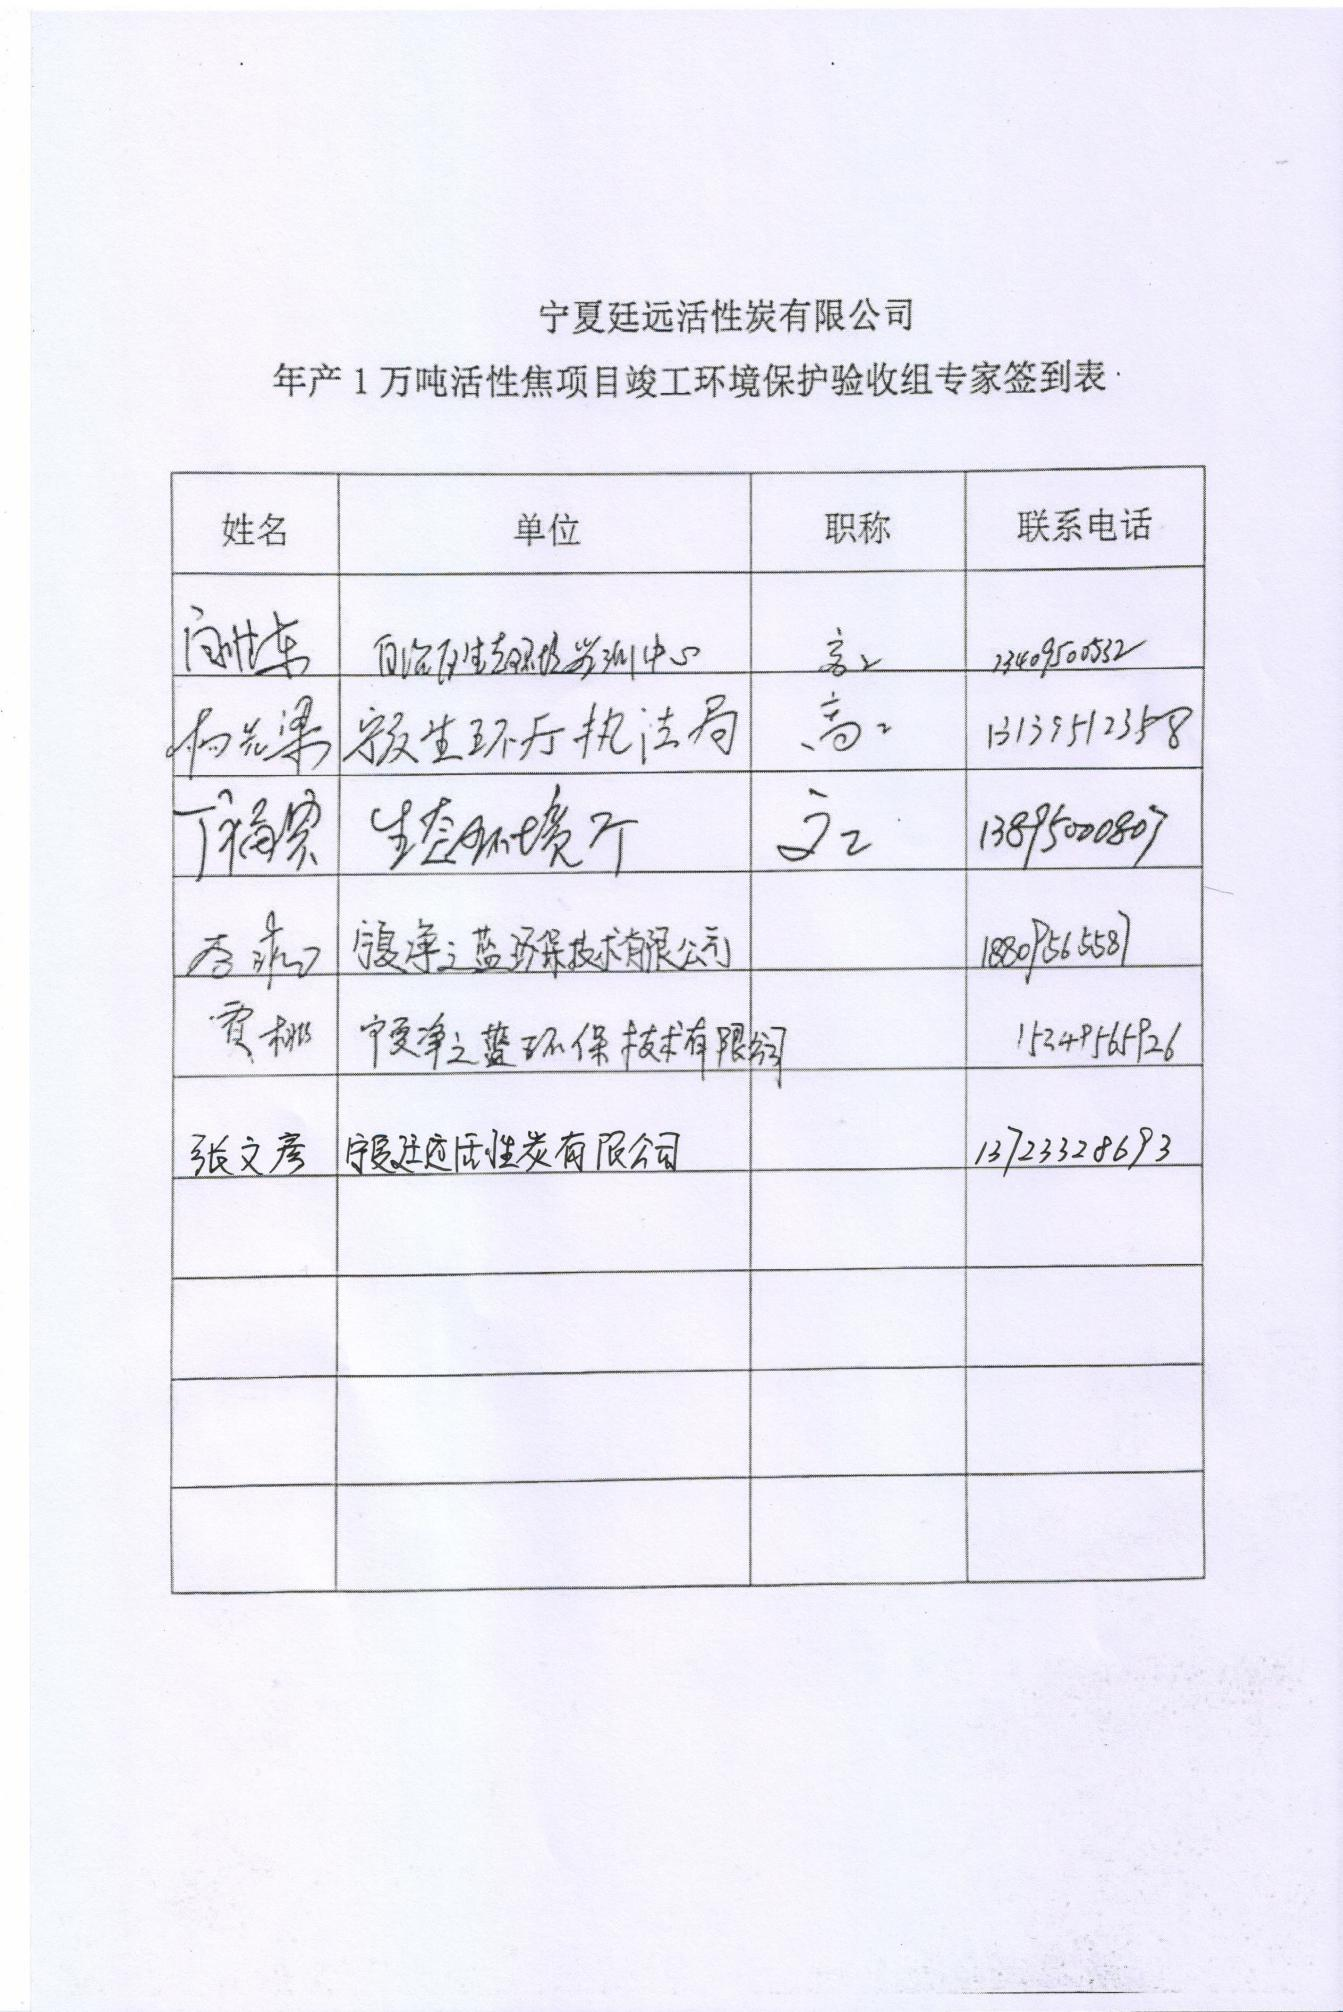 宁夏廷远活性炭有限公司
年产1万吨活性焦项目竣工环境保护验收组专家签到表
姓名 单位 职称 联系电话
自治区生态环境监测中心 高工
宁夏生环厅执法局 高工 13139512358
丁 生态环境厅 高工 13895000807
宁夏净之蓝环保技术有限公司 18809565587
贾桃 宁夏净之蓝环保技术有限公司 15349565926
张文彦 宁夏廷远活性炭有限公司 13723328693